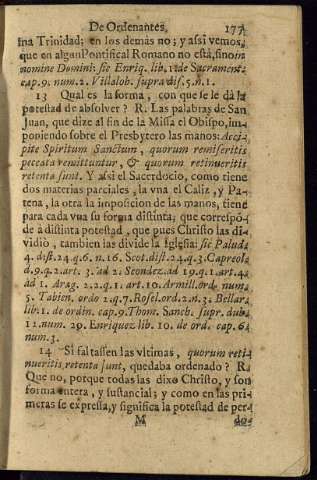 De Ordenantes, 177
ina Trinidad; en los demàs no; y assi vemos,
que en algun Pontifical Romano no està, sino in
nomine Domini: sic Enriq. lib. 1. de Sacrament.
cap. 9. num. 2. Villalob. supra dif. 5. n. 1.
13 Qual es la forma, con que se le dà la
potestad de absolver? R. Las palabras de San
Juan, que dize al fin de la Missa el Obispo, im-
poniendo sobre el Presbytero las manos: Acci-
pite Spiritum Sanctum, quorum remiseritis
peccata remittuntur, & quorum retinueritis
retenta sunt. Y assi el Sacerdocio, como tiene
dos materias parciales, la vna el Caliz, y Pa-
tena, la otra la imposicion de las manos, tiene
para cada vna su forma distinta; que correspõ-
de à distinta potestad, que pues Christo las di-
vidiò, tambien las divide la Iglesia: sic Palud.
4. dist. 24. q. 6. n. 16. Scot. dist. 24. q. 3. Capreol.
d. 9. q. 2. art. 3. ad 2. Seondez. ad 19. q. 1. art. 4.
ad 1. Arag. 2. 2. q. 1. art. 10. Armill. ord. num.
5. Tabien. ordo 2. q. 7. Rosel. ord. 2. n. 3. Bellar.
lib. 1. de ordin. cap. 9. Thom. Sanch. supr. dub.
11. num. 29. Enriquez lib. 10. de ord. cap. 6.
num. 3.
14 Si faltassen las vltimas, quorum reti-
nueritis retenta sunt, quedaba ordenado? R.
Que no, porque todas las dixo Christo, y son
forma entera, y sustancial; y como en las pri-
meras se expressa, y significa la potestad de per-
M do-